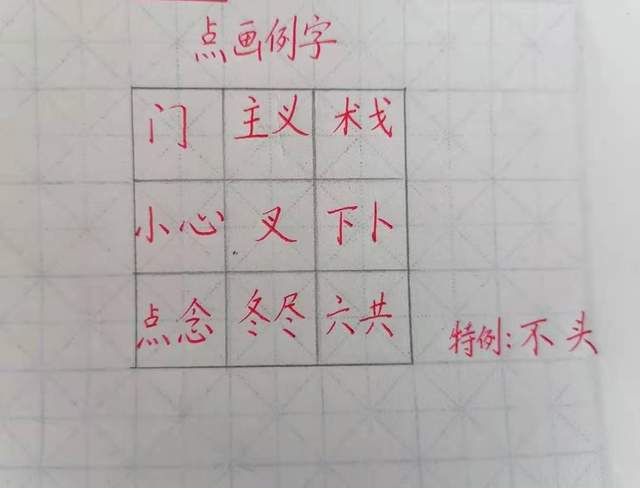 点画例字
门 主义 术戈
小心 叉 下卜
点念 冬尽 六共
特例:不头